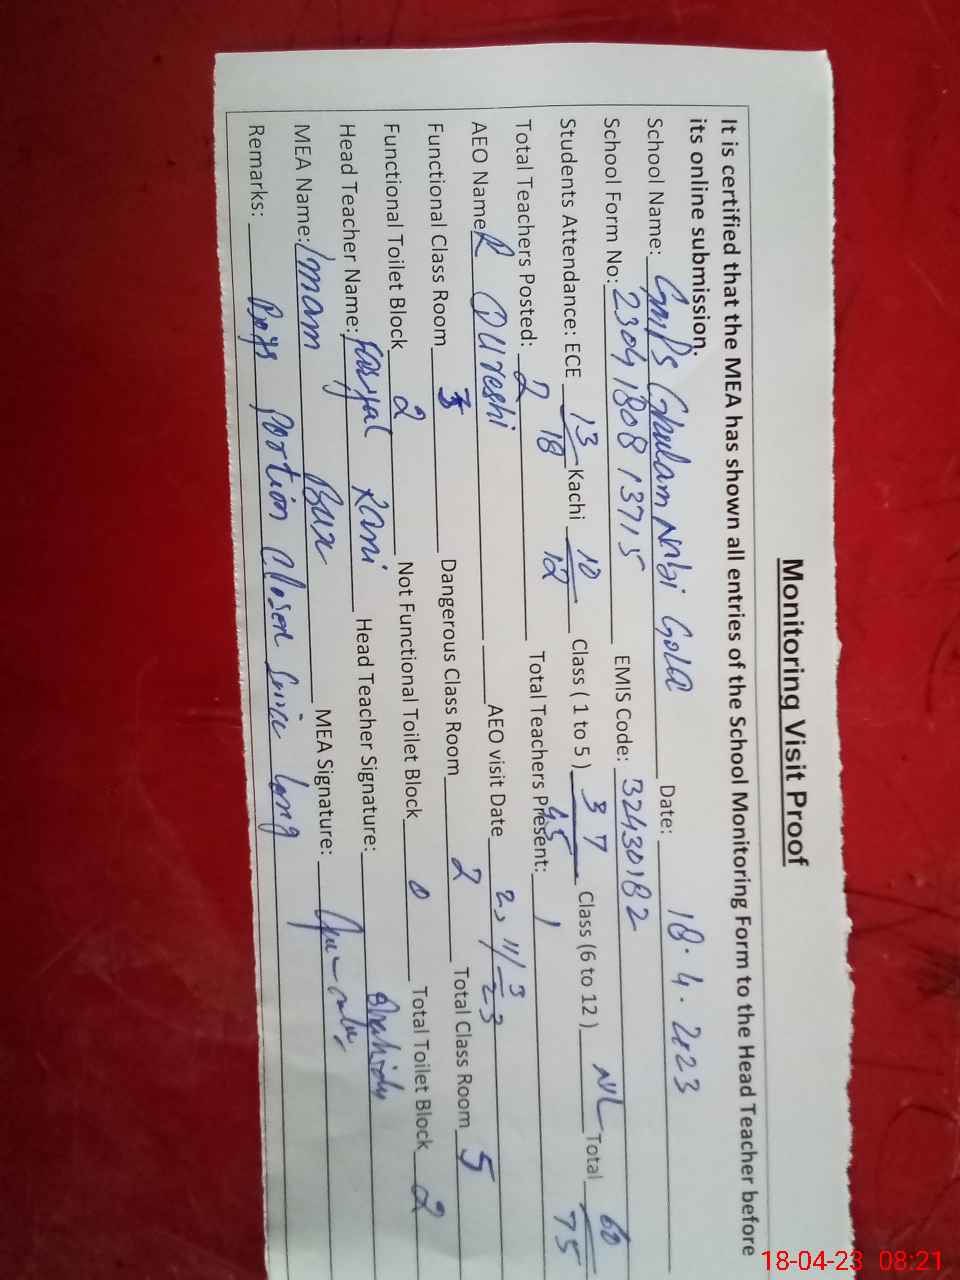 Monitoring Visit Proof
It is certified that the MEA has shown all entries of the School Monitoring Form to the Head Teacher before
its online submission.
School Name: GMPS Ghulam Nabi Gola Date: 18.4.2023
School Form No: 23041808 13715 EMIS Code: 32430182
Students Attendance: ECE 13/18 Kachi 10/12 Class ( 1 to 5 ) 37/45 Class (6 to 12 ) NIL Total 60/75
Total Teachers Posted: 2 Total Teachers Present: 1
AEO Name R Qureshi AEO visit Date
Functional Class Room 3 Dangerous Class Room 2 Total Class Room 5
Functional Toilet Block 2 Not Functional Toilet Block 0 Total Toilet Block 2
Head Teacher Name: Rani Head Teacher Signature:
MEA Name: Imam Bux MEA Signature:
Remarks: Boys portion closed since long
18-04-23 08:21